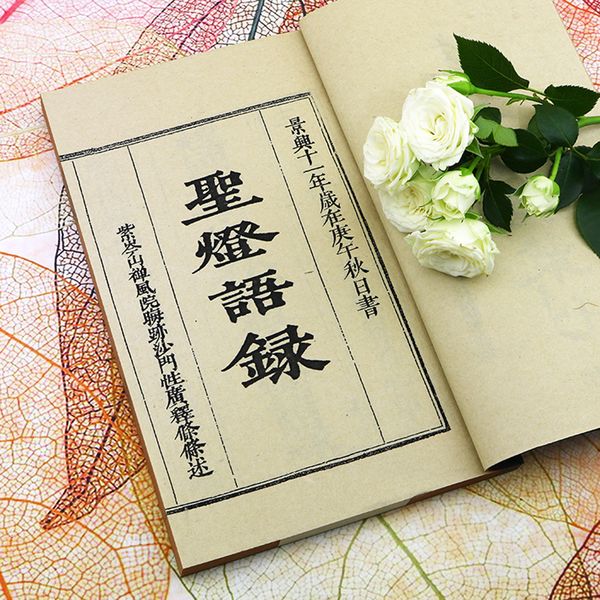 景興十一年歲在庚午秋日書
聖燈語録
紫岑山禅風院晦跡沙門性廣釋條條述